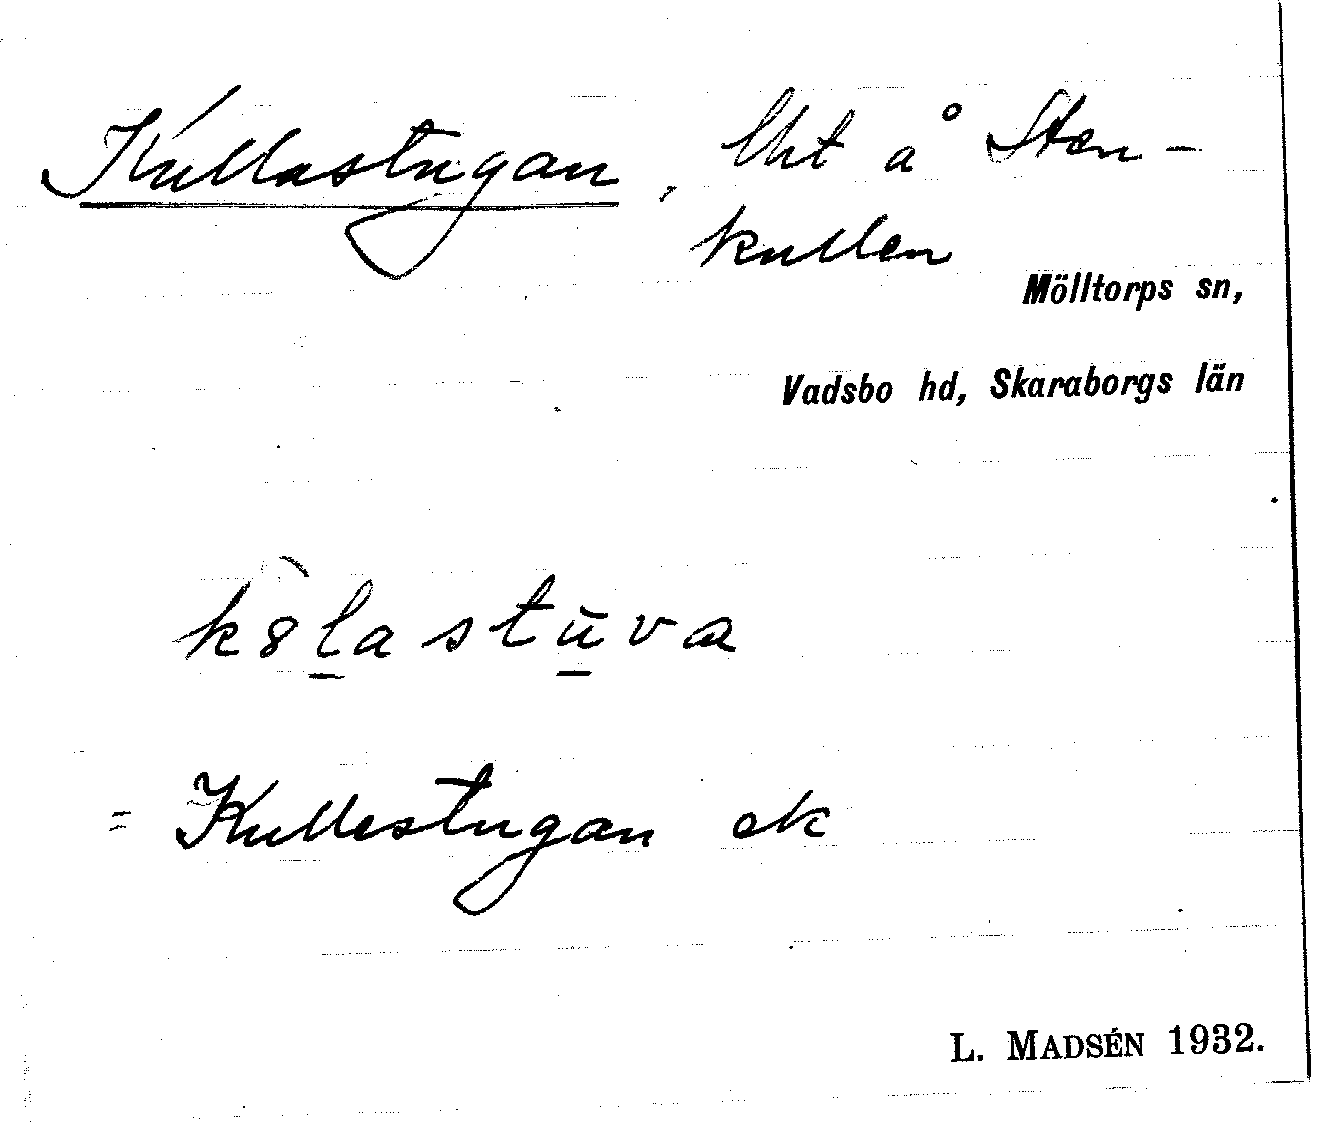 Kullastugan, lht å Sten-
kullen
Mölltorps sn,
Vadsbo hd, Skaraborgs län
k8̀l̲astu̲̅va
= Kullestugan ek
L. MADSÉN 1932.